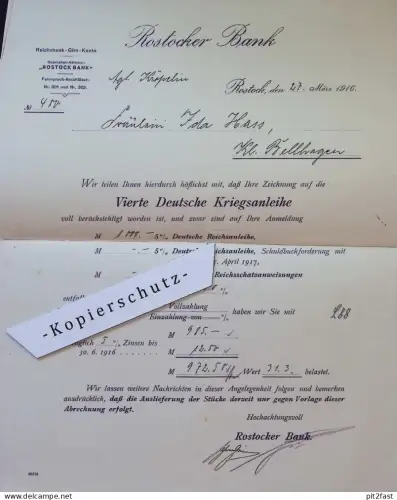 Rostocker Bank
Reichsbank-Giro-Konto
Depeschen-Adresse:
„ROSTOCK BANK“
Fernsprech-Anschlüsse:
Nr. 301 und Nr. 302.
Agt. Kröpelin
Rostock, den 27. März 1916.
№ 400
Fräulein Ida Hass,
Kl. Bellhagen
Wir teilen Ihnen hierdurch höflichst mit, daß Ihre Zeichnung auf die
Vierte Deutsche Kriegsanleihe
voll berücksichtigt worden ist, und zwar sind auf Ihre Anmeldung
M 1000.— 5% Deutsche Reichsanleihe,
M —.— 5% Deutsche Reichsanleihe, Schuldbuchforderung mit
April 1917,
M Reichsschatzanweisungen
entfall
-Kopierschutz-
Vollzahlung
Einzahlung von — % haben wir Sie mit
M 985.—
5% Zinsen bis
30. 6. 1916 M 12.50
M 972.50 Wert 31.3. belastet.
Wir lassen weitere Nachrichten in dieser Angelegenheit folgen und bemerken
ausdrücklich, daß die Auslieferung der Stücke derzeit nur gegen Vorlage dieser
Abrechnung erfolgt.
Hochachtungsvoll
Rostocker Bank.
www.delcampe.net
pit2fast